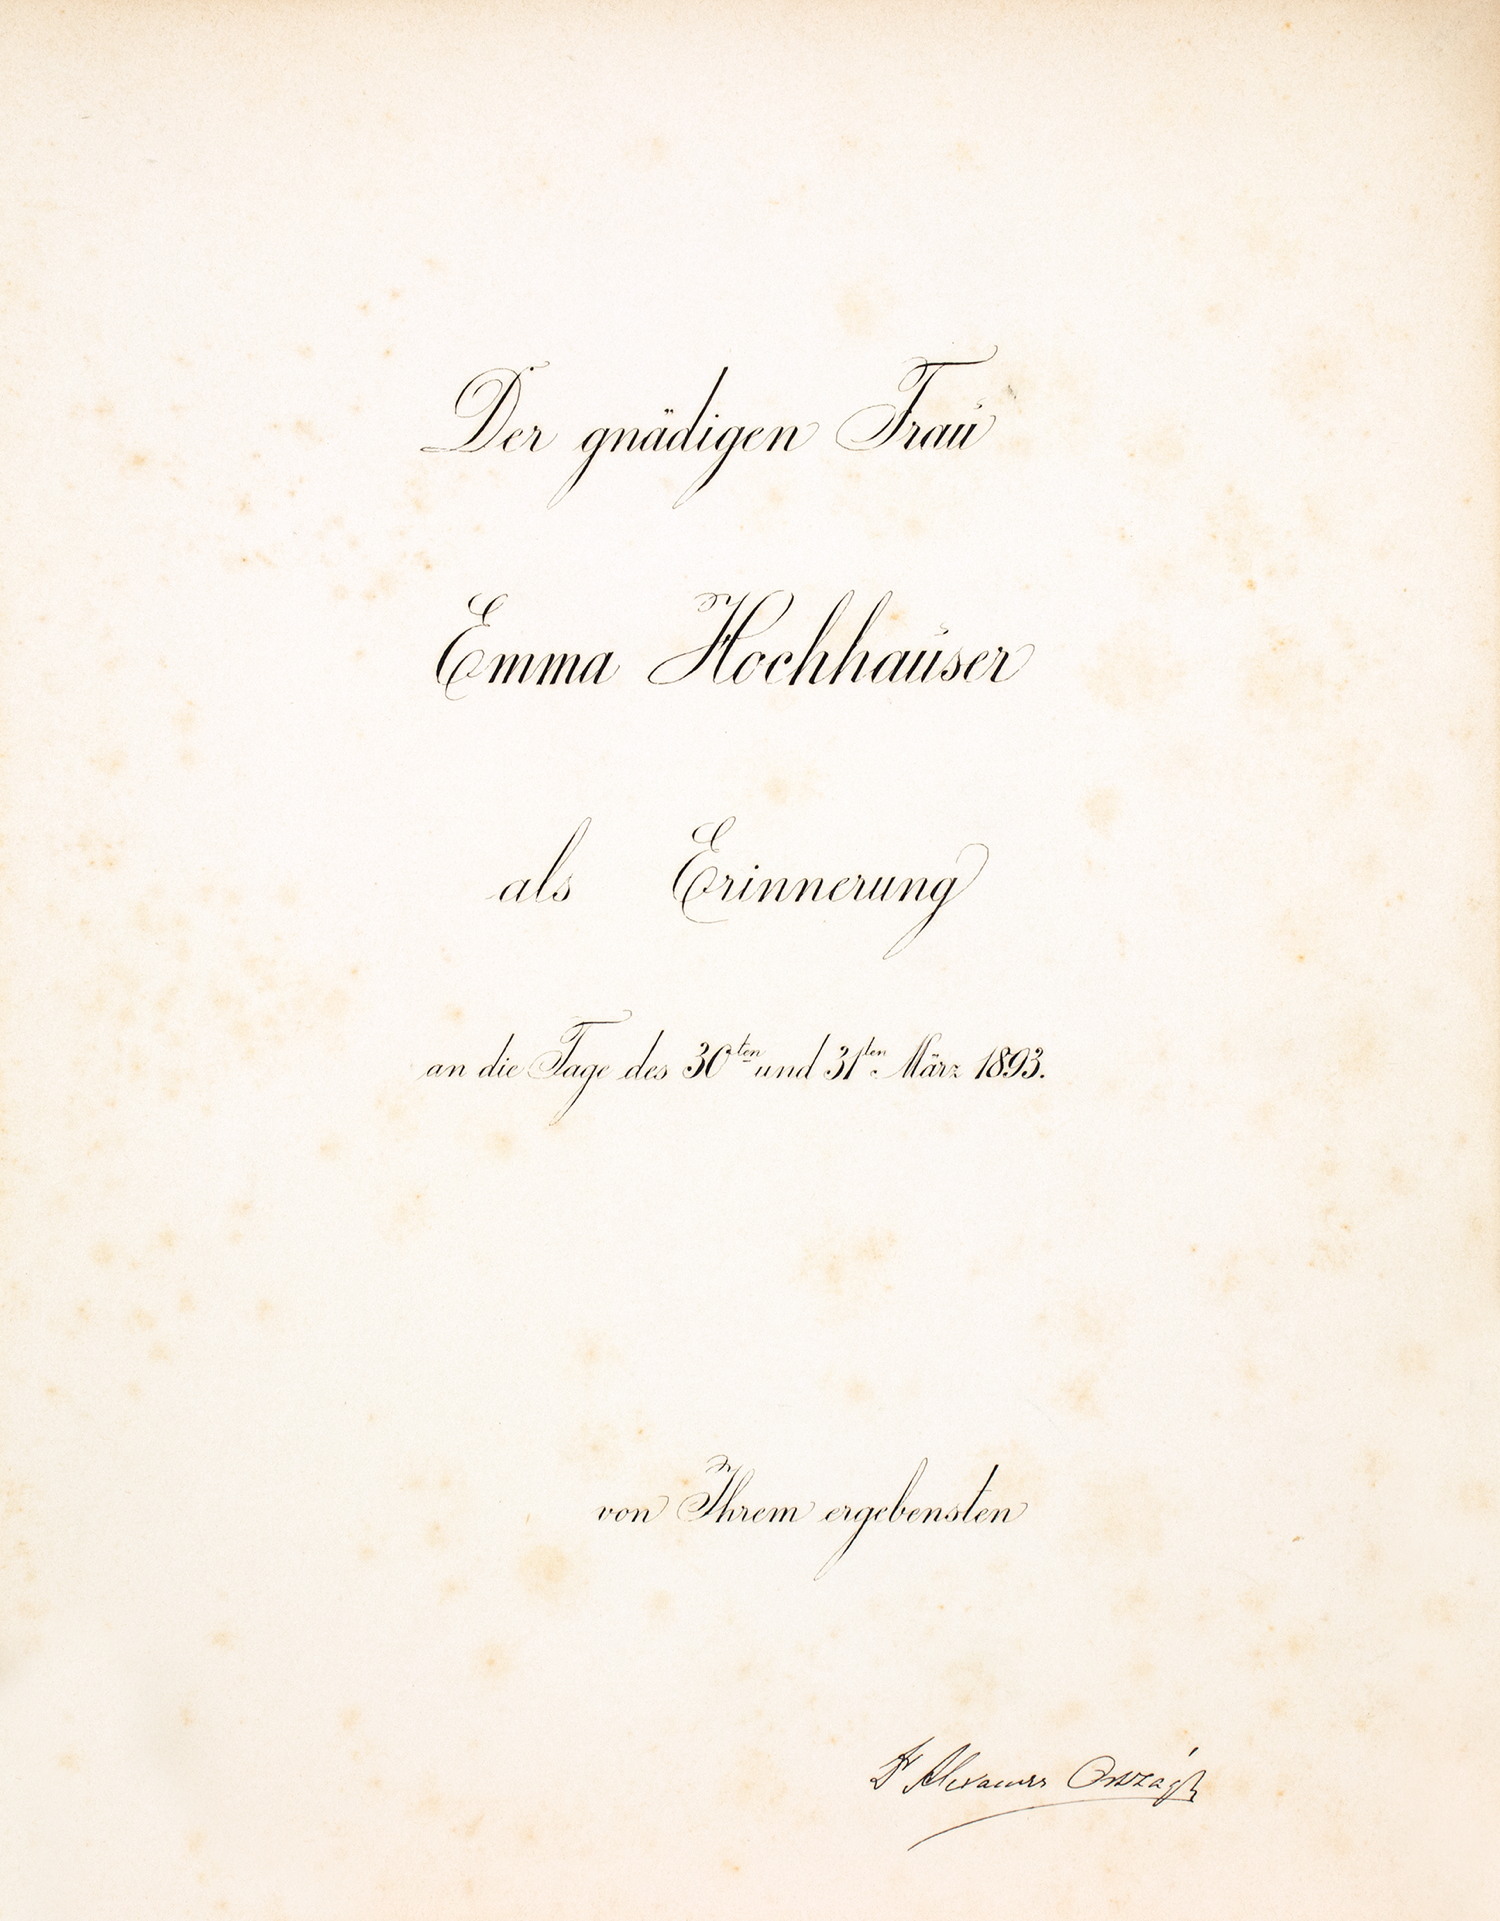 Der gnädigen Frau
Emma Hochhauser
als Erinnerung
an die Tage des 30ten und 31ten März 1893.
von Ihrem ergebensten
Dr Alexander Országh